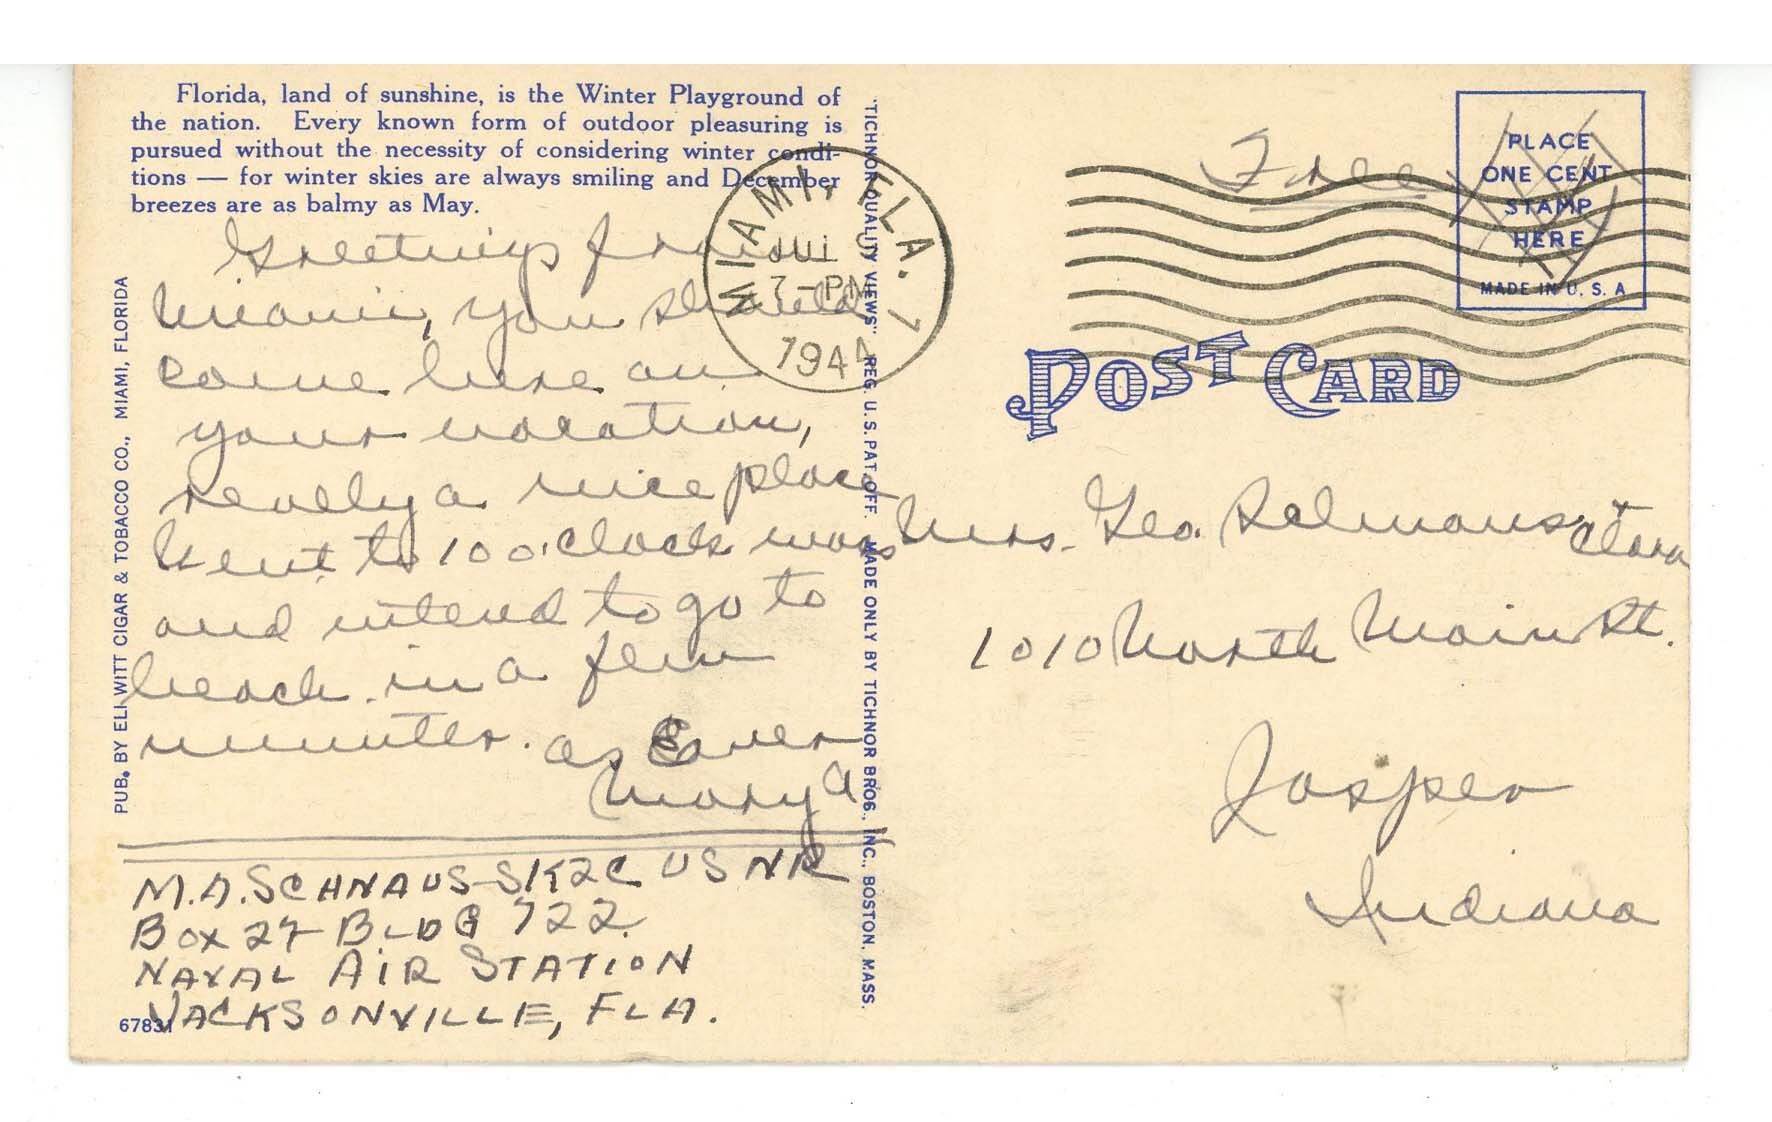 Florida, land of sunshine, is the Winter Playground of
the nation. Every known form of outdoor pleasuring is
pursued without the necessity of considering winter condi-
tions — for winter skies are always smiling and December
breezes are as balmy as May.
Greetings from
Miami, you should
come here on
your vacation,
really a nice place
Went to 10 o'clock mass
and intend to go to
beach in a few
minutes. as Ever
Mary A
M.A. SCHNAUS-SK2C USNR
BOX 27 BLDG 722
NAVAL AIR STATION
JACKSONVILLE, FLA.
67831
PUB. BY ELI WITT CIGAR & TOBACCO CO., MIAMI, FLORIDA
"TICHNOR QUALITY VIEWS" REG. U. S. PAT. OFF. MADE ONLY BY TICHNOR BROS., INC., BOSTON, MASS.
MIAMI, FLA. 1
JUL 9
7-PM
1944
Free
PLACE
ONE CENT
STAMP
HERE
MADE IN U. S. A
POST CARD
Mrs. Geo. Selmans + Clara
1010 North Main St.
Jasper
Indiana